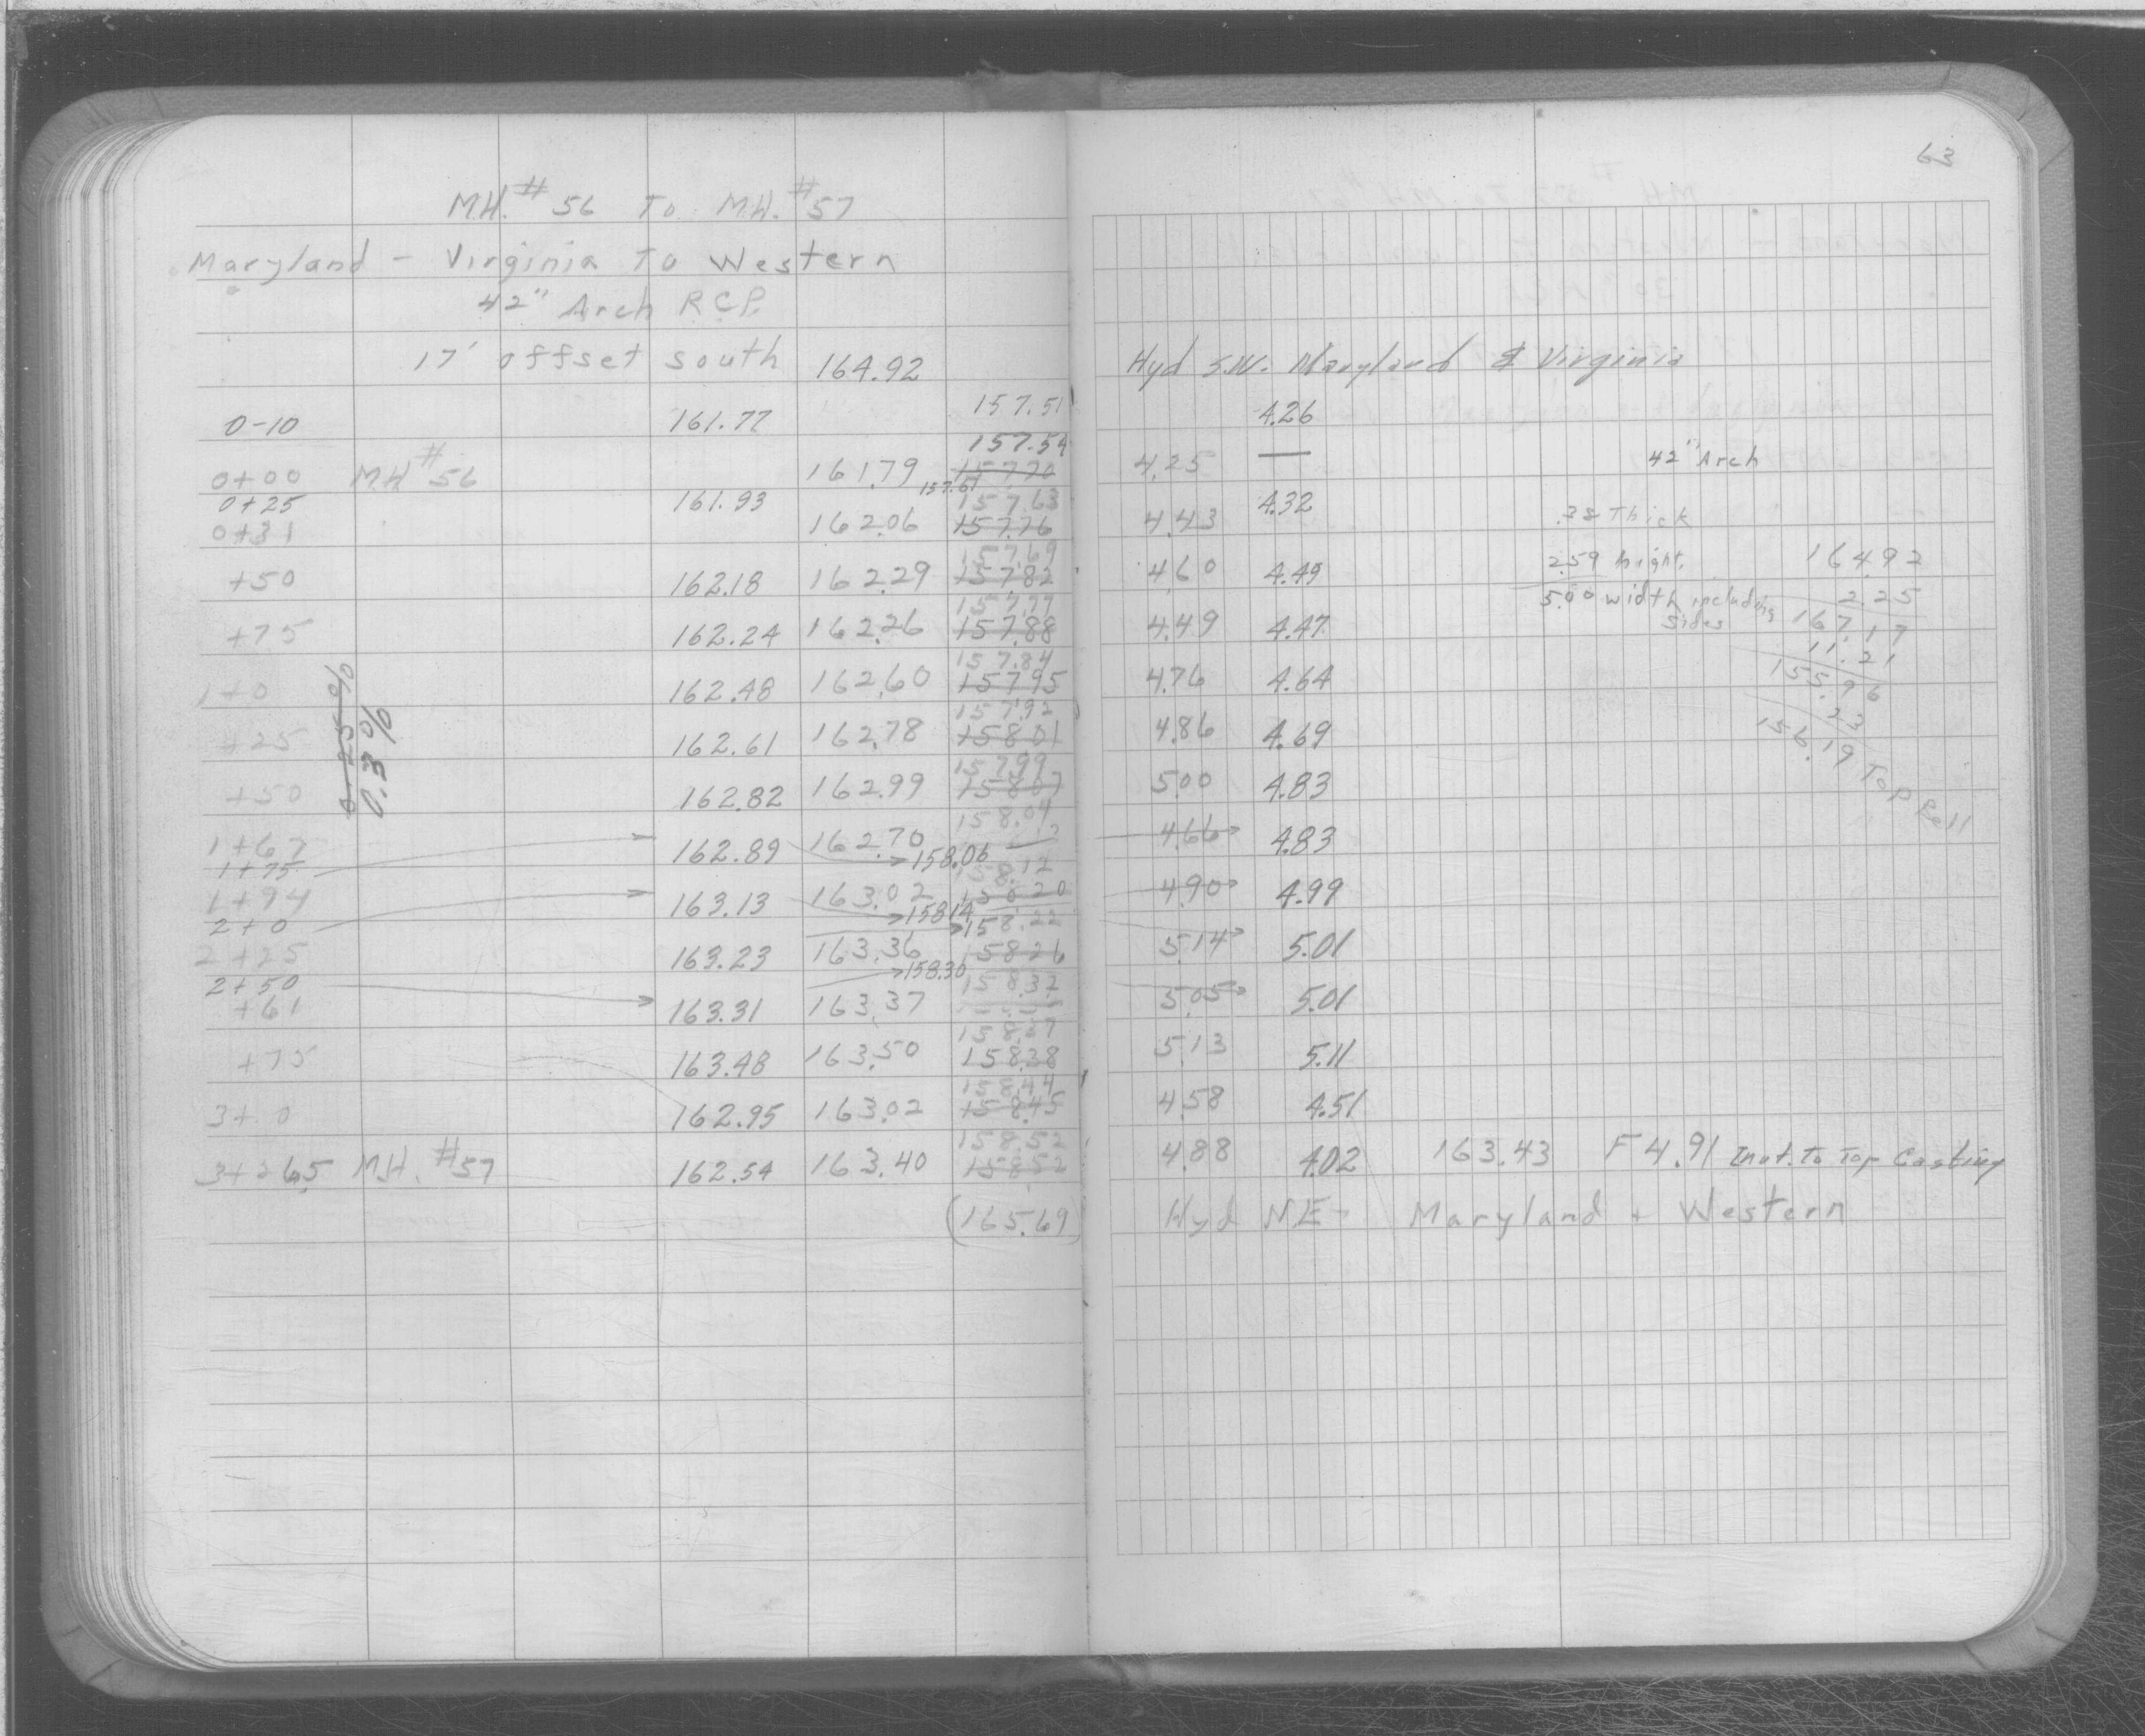 63
M.H. #56 To M.H. #57
Maryland - Virginia To Western
42" Arch R.C.P.
17' offset south 164.92 Hyd S.W. Maryland & Virginia
0-10 161.77 157.51 4.26
157.54
0+00 MH #56 161.79 157.70 4.25 — 42" Arch
0+25 161.93 157.61 4.32
157.63
0+31 162.06 157.76 4.43 .38 Thick
157.69
+50 162.18 162.29 157.82 4.60 4.49 2.59 hight. 164.92
157.77 2.25
+75 162.24 162.26 157.88 4.49 4.47 5.00 width including sides 167.17
157.84 11.21
1+0 162.48 162.60 157.95 4.76 4.64 155.96
157.92 .23
+25 162.61 162.78 158.01 4.86 4.69 156.19 Top Bell
157.99
+50 162.82 162.99 158.07 5.00 4.83
0.25%
0.3%
158.04
1+67 162.89 162.70 4.66 4.83
1+75 158.06
158.12
1+94 163.13 163.02 158.20 4.90 4.99
2+0 158.14 158.22
2+25 163.23 163.36 158.26 5.14 5.01
2+50 158.30
+61 163.31 163.37 158.32 5.05 5.01
158.37
+75 163.48 163.50 158.38 5.13 5.11
158.44
3+0 162.95 163.02 158.45 4.58 4.51
158.52
3+26.5 M.H. #57 162.54 163.40 158.52 4.88 4.02 163.43 F 4.91 Inst. To Top Casting
(165.69) Hyd N.E- Maryland + Western